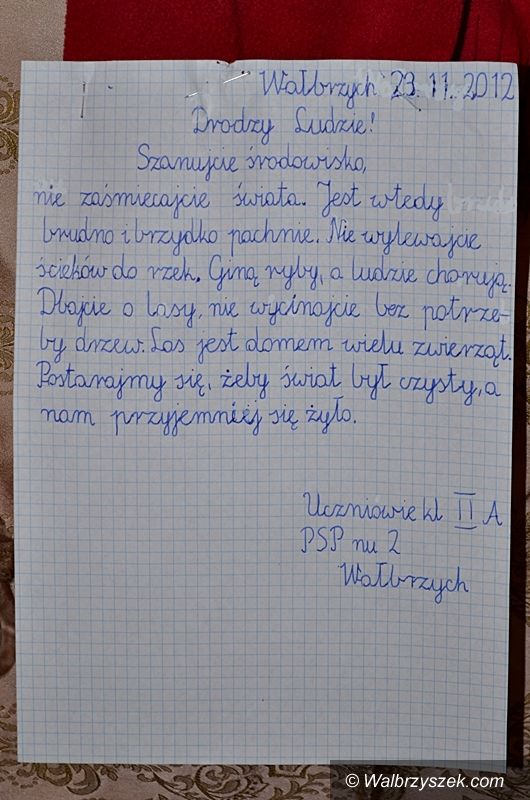 Wałbrzych 23.11.2012
Drodzy Ludzie!
Szanujcie środowisko,
nie zaśmiecajcie świata. Jest wtedy
brudno i brzydko pachnie. Nie wylewajcie
ścieków do rzek. Giną ryby, a ludzie chorują.
Dbajcie o lasy, nie wycinajcie bez potrze-
by drzew. Las jest domem wielu zwierząt.
Postarajmy się, żeby świat był czysty, a
nam przyjemniej się żyło.
Uczniowie kl II A
PSP nu 2
Wałbrzych
© Walbrzyszek.com